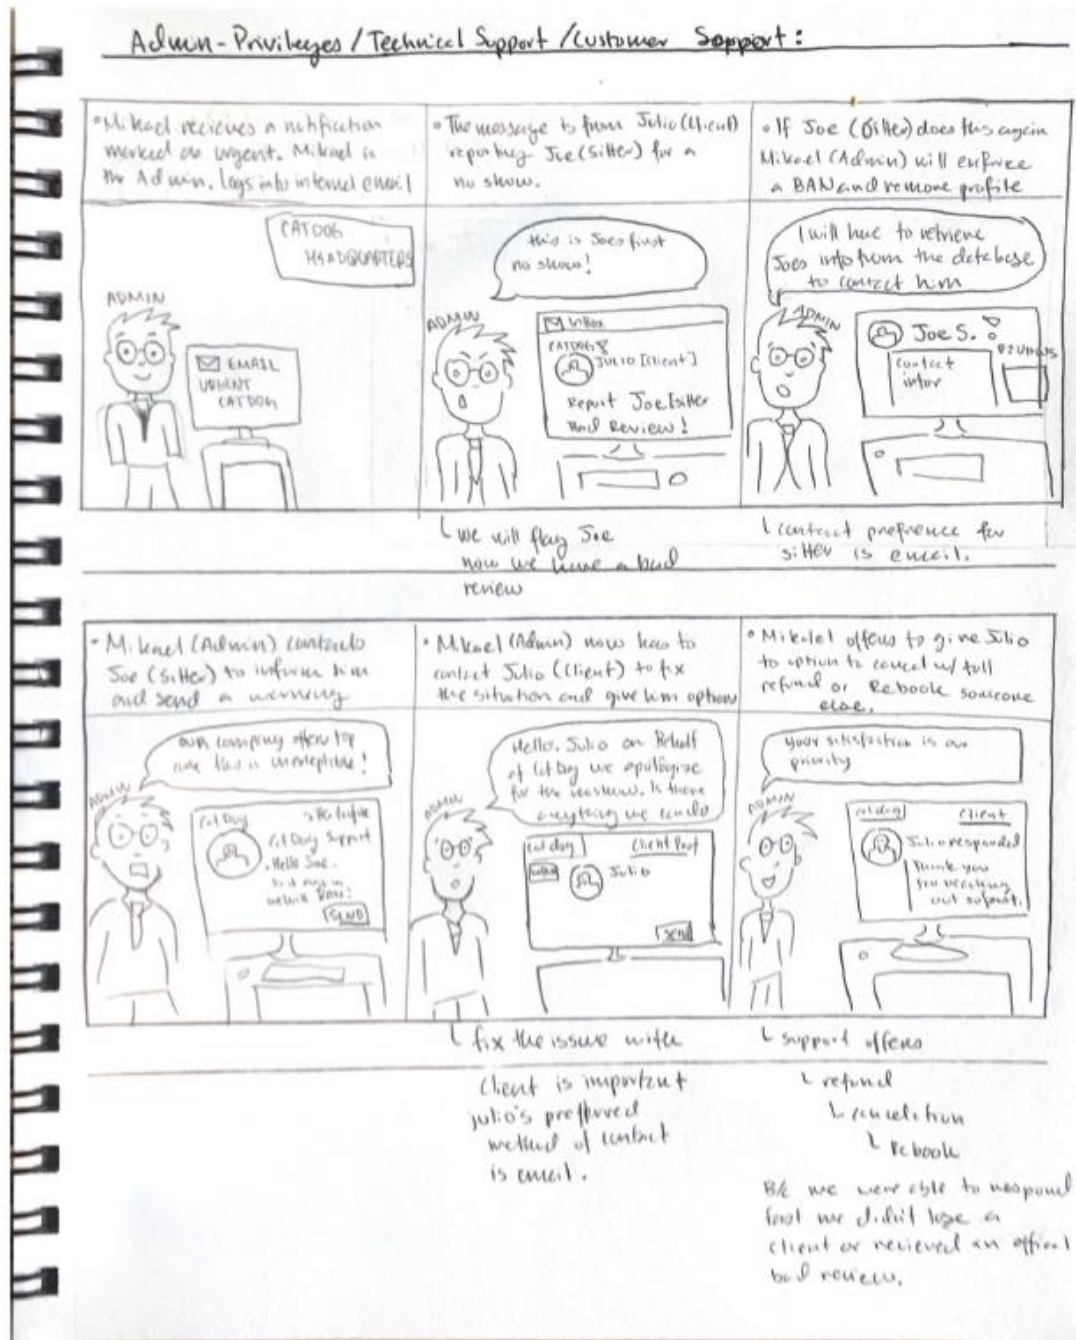 Admin-Privileges / Technical Support / Customer Support:
• Mikael recieves a notification
marked as urgent. Mikael is
the Admin, logs into internal email
CATDOG
HEADQUARTERS
ADMIN
EMAIL
URGENT
CATDOG
• The message is from Julio (Client)
reporting Joe (Sitter) for a
no show.
this is Joes first
no show!
ADMIN
Inbox
CATDOG
JULIO [Client]
Report Joe [sitter
Bad Review!
we will flag Joe
now we have a bad
review
• If Joe (Sitter) does this again
Mikael (Admin) will enforce
a BAN and remove profile
I will have to retrieve
Joes info from the database
to contact him
ADMIN
Joe S.
REVIEWS
contact
infor
contact prefrence for
sitter is email.
• Mikael (Admin) contacts
Joe (Sitter) to inform him
and send a warning
our company offers top
care this is unacceptible!
ADMIN
Cat Dog
Profile
Cat Dog Support
Hello Joe.
SEND
• Mikael (Admin) now has to
contact Julio (Client) to fix
the situation and give him option
Hello, Julio on Behalf
of Cat Dog we apologize
for the no show. Is there
anything we can do
ADMIN
Cat dog
Client
Julio
SEND
fix the issue with
client is important
julio's preffured
method of contact
is email.
• Mikalel offers to give Julio
to option to cancel w/ full
refund or Rebook someone
else.
your satisfaction is our
priority
ADMIN
cat dog
Client
Julio responded
Thank you
for reaching
out
support offers
refund
cancelation
Rebook
B/c we were able to respond
fast we didn't lose a
client or recieved an offical
bad review.